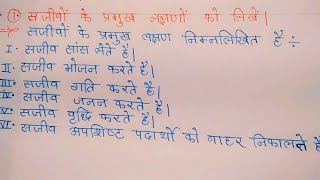 ① सजीवों के प्रमुख लक्षणों को लिखें।
→ सजीवों के प्रमुख लक्षण निम्नलिखित हैं ÷
I. सजीव सांस लेते हैं।
II. सजीव भोजन करते हैं।
III. सजीव गति करते हैं।
IV. सजीव जनन करते हैं।
V. सजीव वृद्धि करते हैं।
VI. सजीव अपशिष्ट पदार्थों को बाहर निकालते हैं